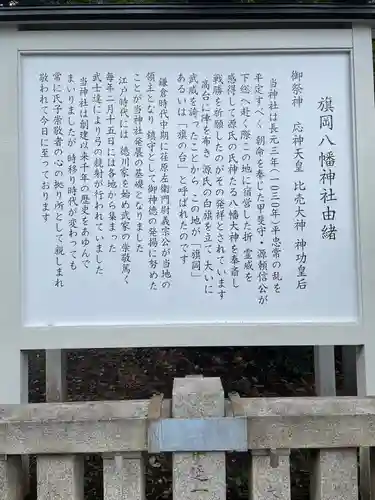 旗岡八幡神社由緒
御祭神 応神天皇 比売大神 神功皇后
当神社は長元三年(一〇三〇年)平忠常の乱を
平定すべく 朝命を奉じた甲斐守・源頼信公が
下総へ赴く際この地に宿営した折 霊威を
感得して源氏の氏神たる八幡大神を奉斎し
戦勝を祈願したのがその発祥とされています
高台に陣を布き 源氏の白旗を立て 大いに
武威を誇ったことから この地が「旗岡」
あるいは「旗の台」と呼ばれたのです
鎌倉時代中期に荏原左衛門尉義宗公が当地の
領主となり 鎮守として御神徳の発揚に努めた
ことが当神社発展の基礎となりました
江戸時代には 徳川家を始め武家の崇敬篤く
毎年二月十五日には各地から集まった
武士達により弓の競射が行われていました
当神社は創建以来千年の歴史をあゆんで
まいりましたが 時移り時代が変わっても
常に氏子崇敬者の心の拠り所として親しまれ
敬われて今日に至っております